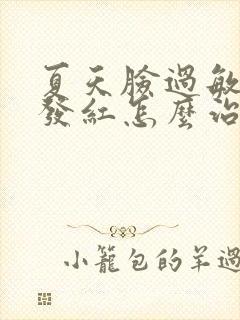 夏天臉過敏
發紅怎麼治
小籠包的羊過